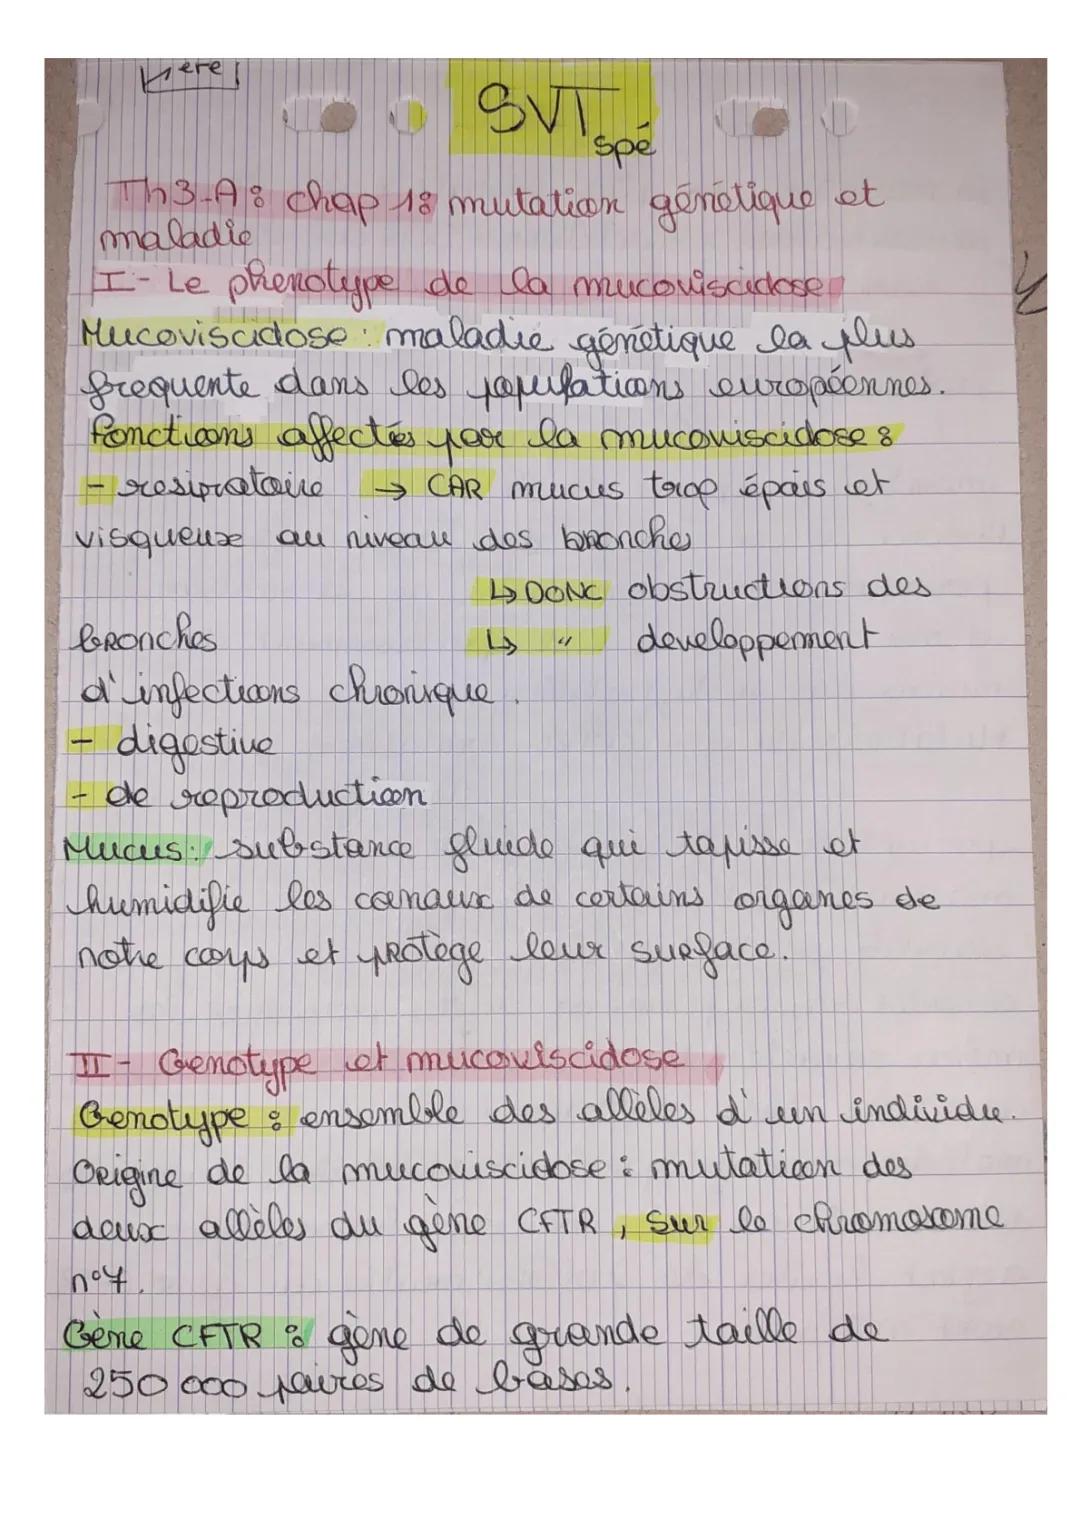 1ere
SVT
spé
Th3-A : chap 1 : mutation génétique et
maladie
I - Le phenotype de la mucoviscidose
Mucoviscidose : maladie génétique la plus
frequente dans les populations européennes.
fonctions affectés par la mucoviscidose :
- respiratoire → CAR mucus trop épais et
visqueuse au niveau des bronches
↳ DONC obstructions des
bronches ↳ " developpement
d'infections chronique.
- digestive
- de reproduction
Mucus : substance fluide qui tapisse et
humidifie les canaux de certains organes de
notre corps et protège leur surface.
II - Genotype et mucoviscidose
Genotype : ensemble des allèles d'un individu.
Origine de la mucoviscidose : mutation des
deux allèles du gène CFTR, sur le chromosome
n°7.
Gène CFTR : gène de grande taille de
250 000 paires de bases.